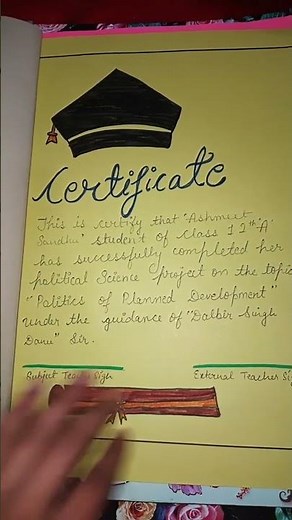 Certificate
This is certify that "Ashmeet
Sandhu" student of class 12th 'A'
has successfully completed her
political Science project on the topic
"Politics of Planned Development"
under the guidance of "Dalbir Singh
Danu" Sir.
Subject Teacher Sigh
External Teacher Si